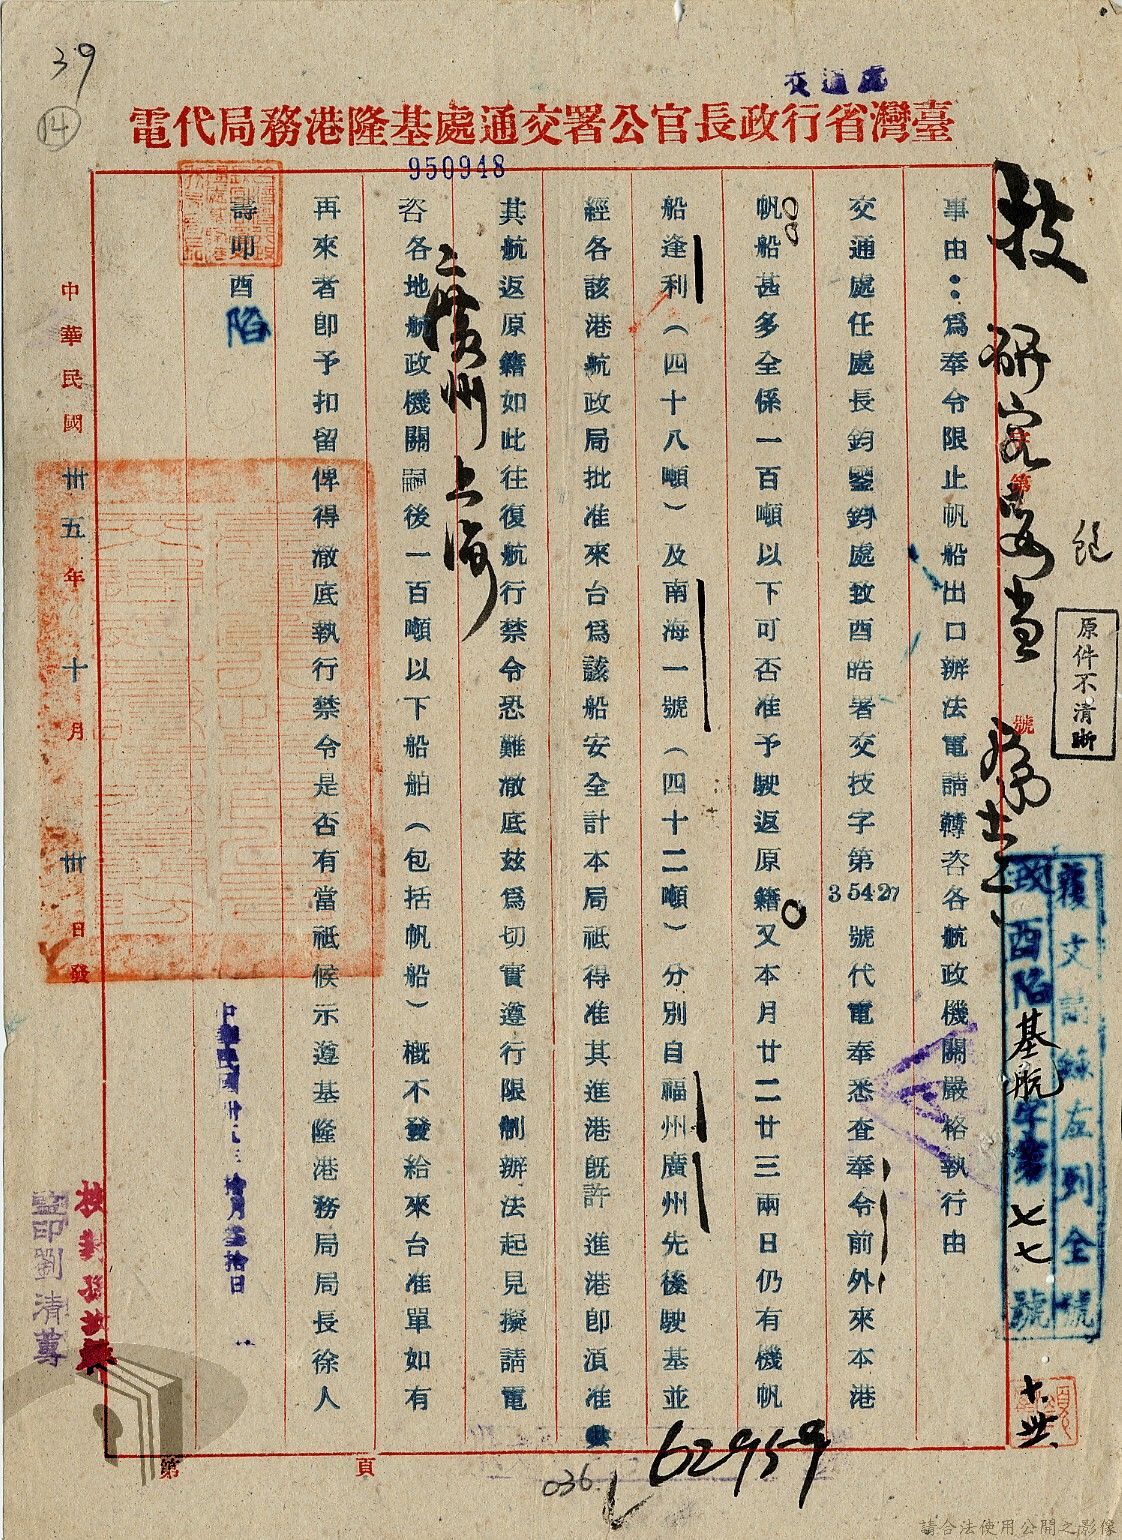 39
14
交通處
臺灣省行政長官公署交通處基隆港務局代電
950948
字第 號
覆文請錄左列全號
致酉陷基航字第七七號
原件不清晰
事由：為奉令限止帆船出口辦法電請轉咨各航政機關嚴格執行由
交通處任處長鈞鑒鈞處致酉晧署交技字第35427號代電奉悉查奉令前外來本港
帆船甚多全係一百噸以下可否准予駛返原籍又本月廿二廿三兩日仍有機帆
船逢利（四十八噸）及南海一號（四十二噸）分別自福州廣州先後駛基並
經各該港航政局批准來台為該船安全計本局祇得准其進港既許進港即須准
其航返原籍如此往復航行禁令恐難澈底茲為切實遵行限制辦法起見擬請電
咨各地航政機關嗣後一百噸以下船舶（包括帆船）概不發給來台准單如有
再來者即予扣留俾得澈底執行禁令是否有當祇候示遵基隆港務局局長徐人
壽叩酉陷
廣州上海
中華民國卅五年十月卅日發
中華民國卅五年拾月叁拾日
監印劉清蓴
校對
第 頁
62959
036.1
請合法使用公開之影像